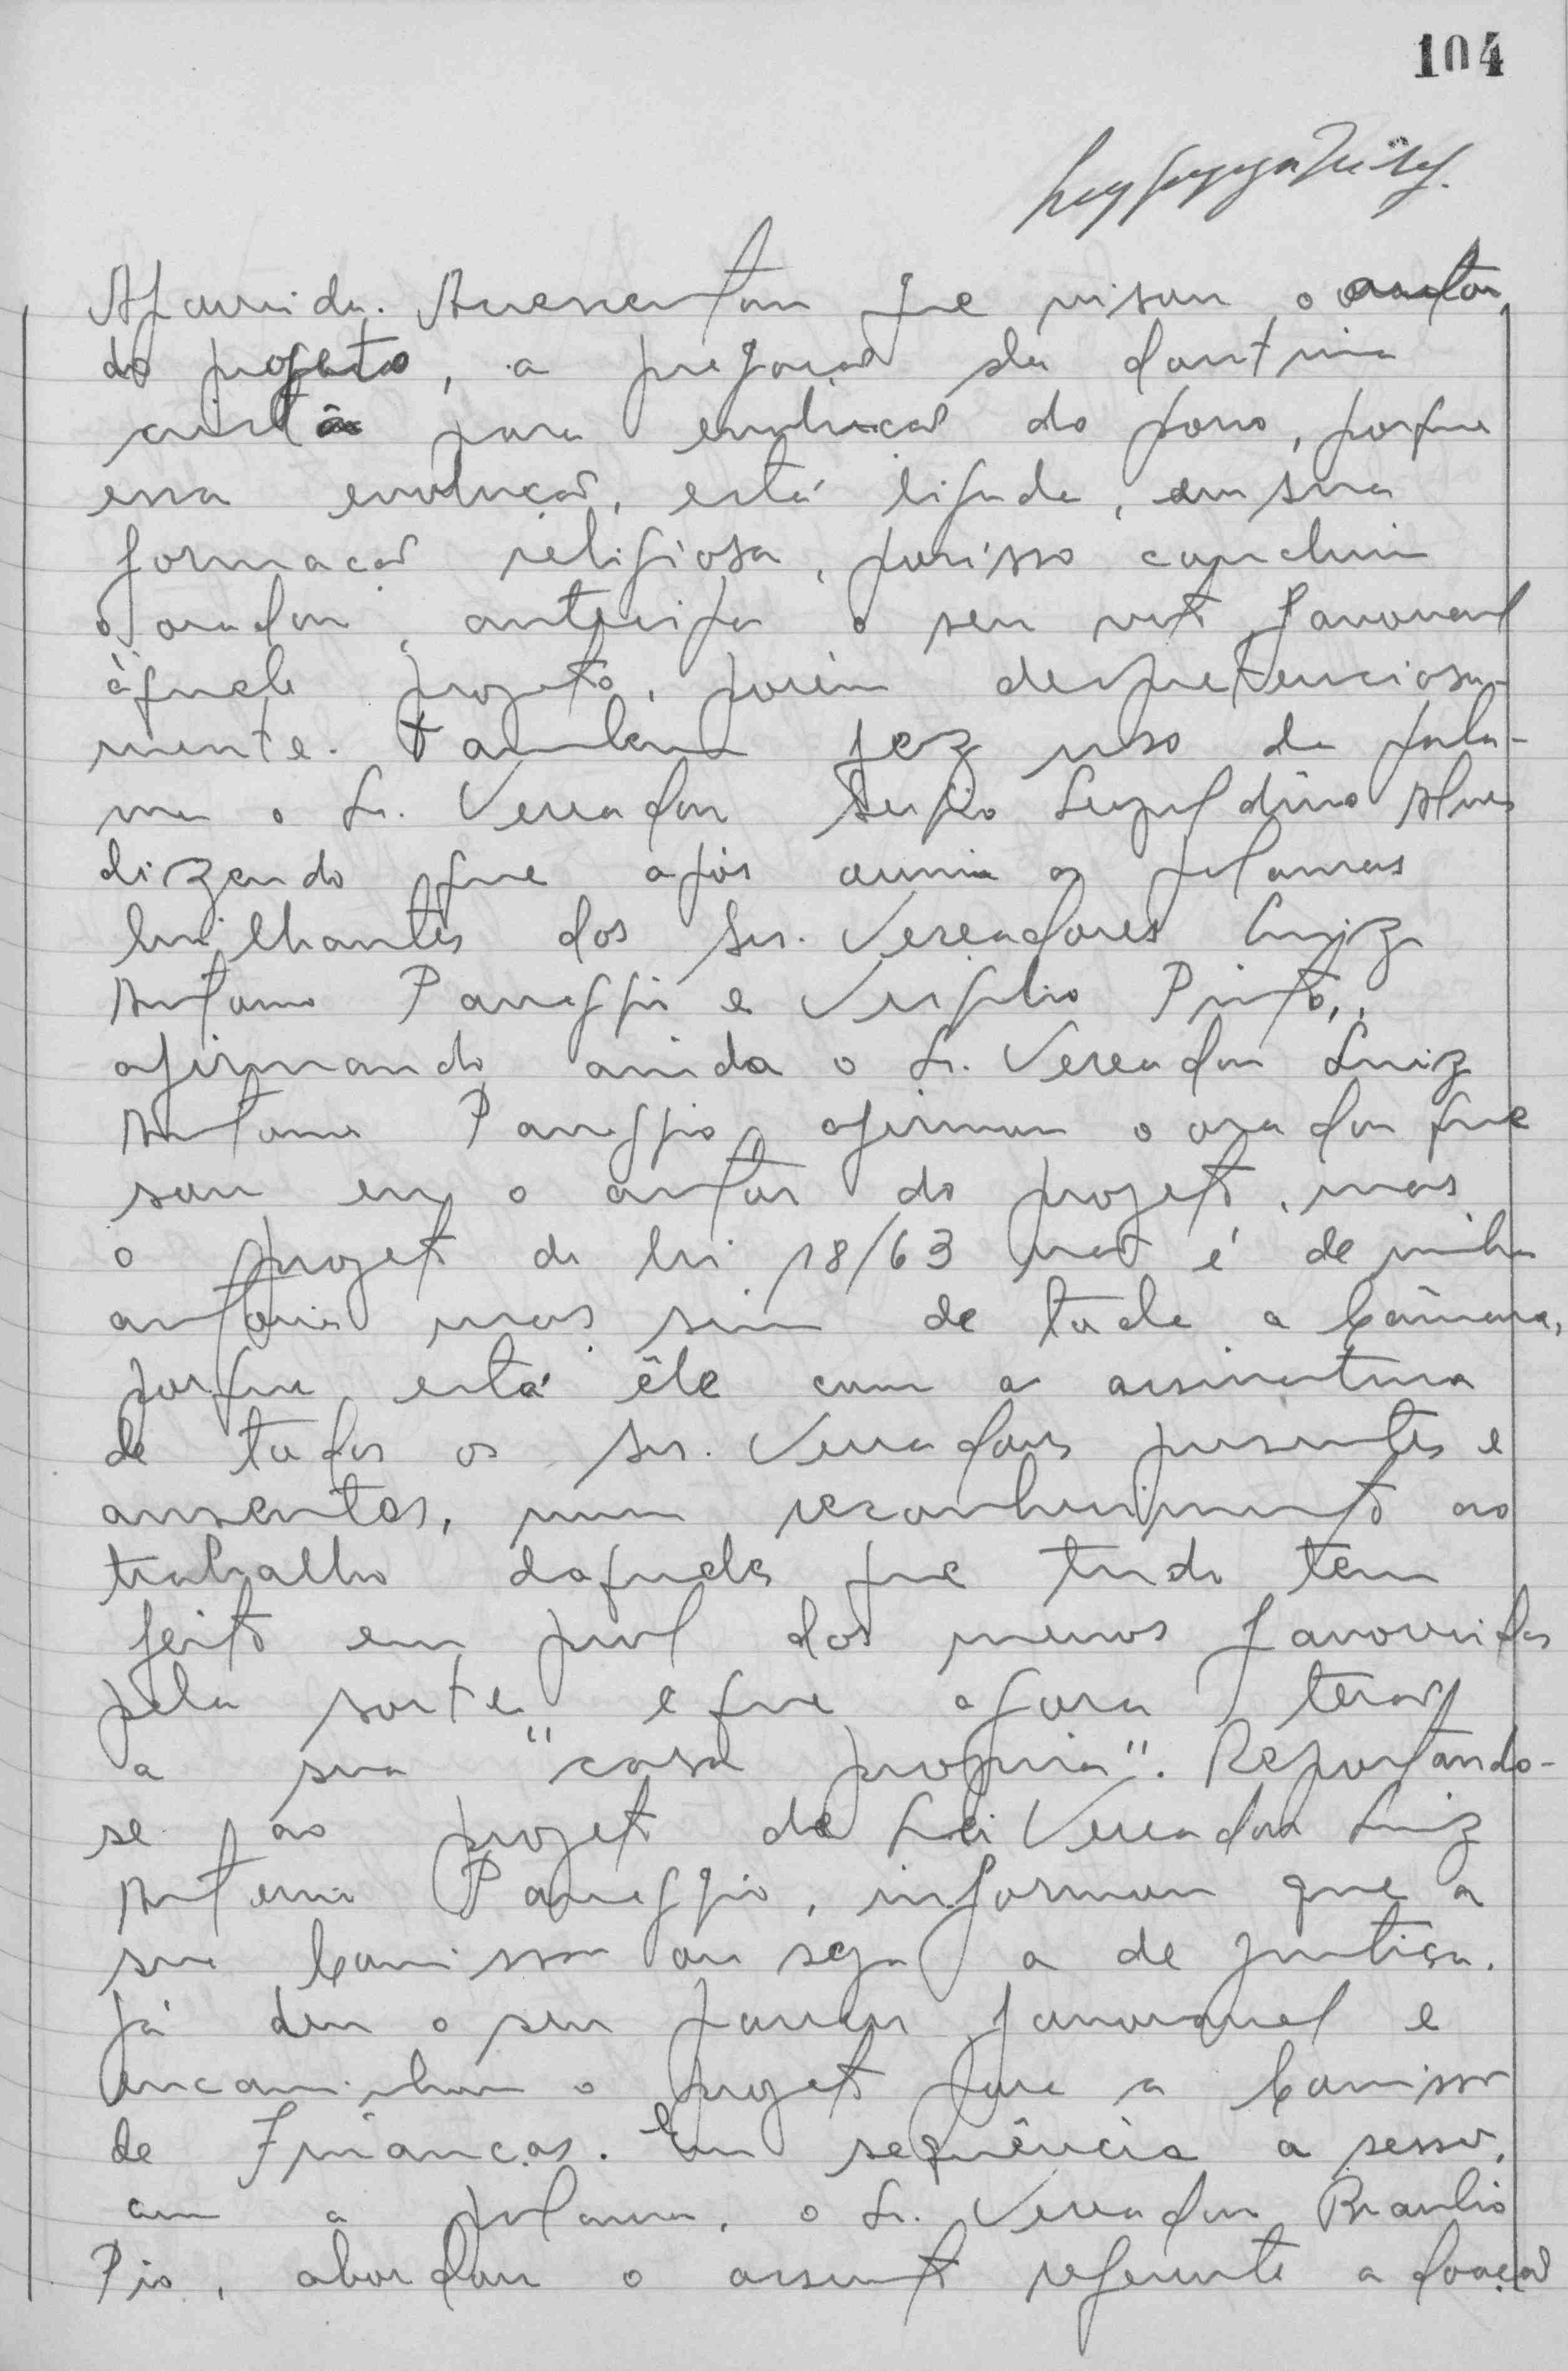 104
Aparecida. Acrescentou que visou o autor
do projeto, a pregação da doutrina
cristã para evolução do povo, porque
essa evolução, está ligada, em sua
formação religiosa, porisso concluiu
o orador, antecipa o seu voto favoravel
àquele projeto, porém despretenciosa-
mente. Também fez uso da pala-
vra o Sr. Vereador Sergio Alves
dizendo que após ouvir as palavras
brilhantes dos Srs. Vereadores Luiz
Antonio Pareggio e Virgilio Pinto,
afirmando ainda o Sr. Vereador Luiz
Antonio Pareggio, afirmou o orador que
sou eu o autor do projeto, mas
o projeto de lei 18/63 não é de minha
autoria mas sim de toda a Câmara,
porque está êle com a assinatura
de todos os Srs. Vereadores presentes e
ausentes, num reconhecimento ao
trabalho daqueles que tudo tem
feito em prol dos menos favorecidos
pela sorte e que agora terão
a sua "casa propria". Reportando-
se ao projeto de Lei Vereador Luiz
Antonio Pareggio, informou que a
sua Comissão ou seja a de justiça.
já deu o seu parecer favoravel e
encaminhou o projeto para a Comissão
de Finanças. Em sequência a sessão,
com a palavra, o Sr. Vereador Braulio
Pio, abordou o assunto referente a doação